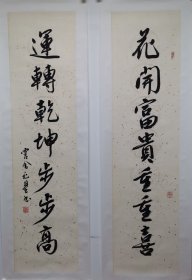 花開富貴重重喜
運轉乾坤步步高